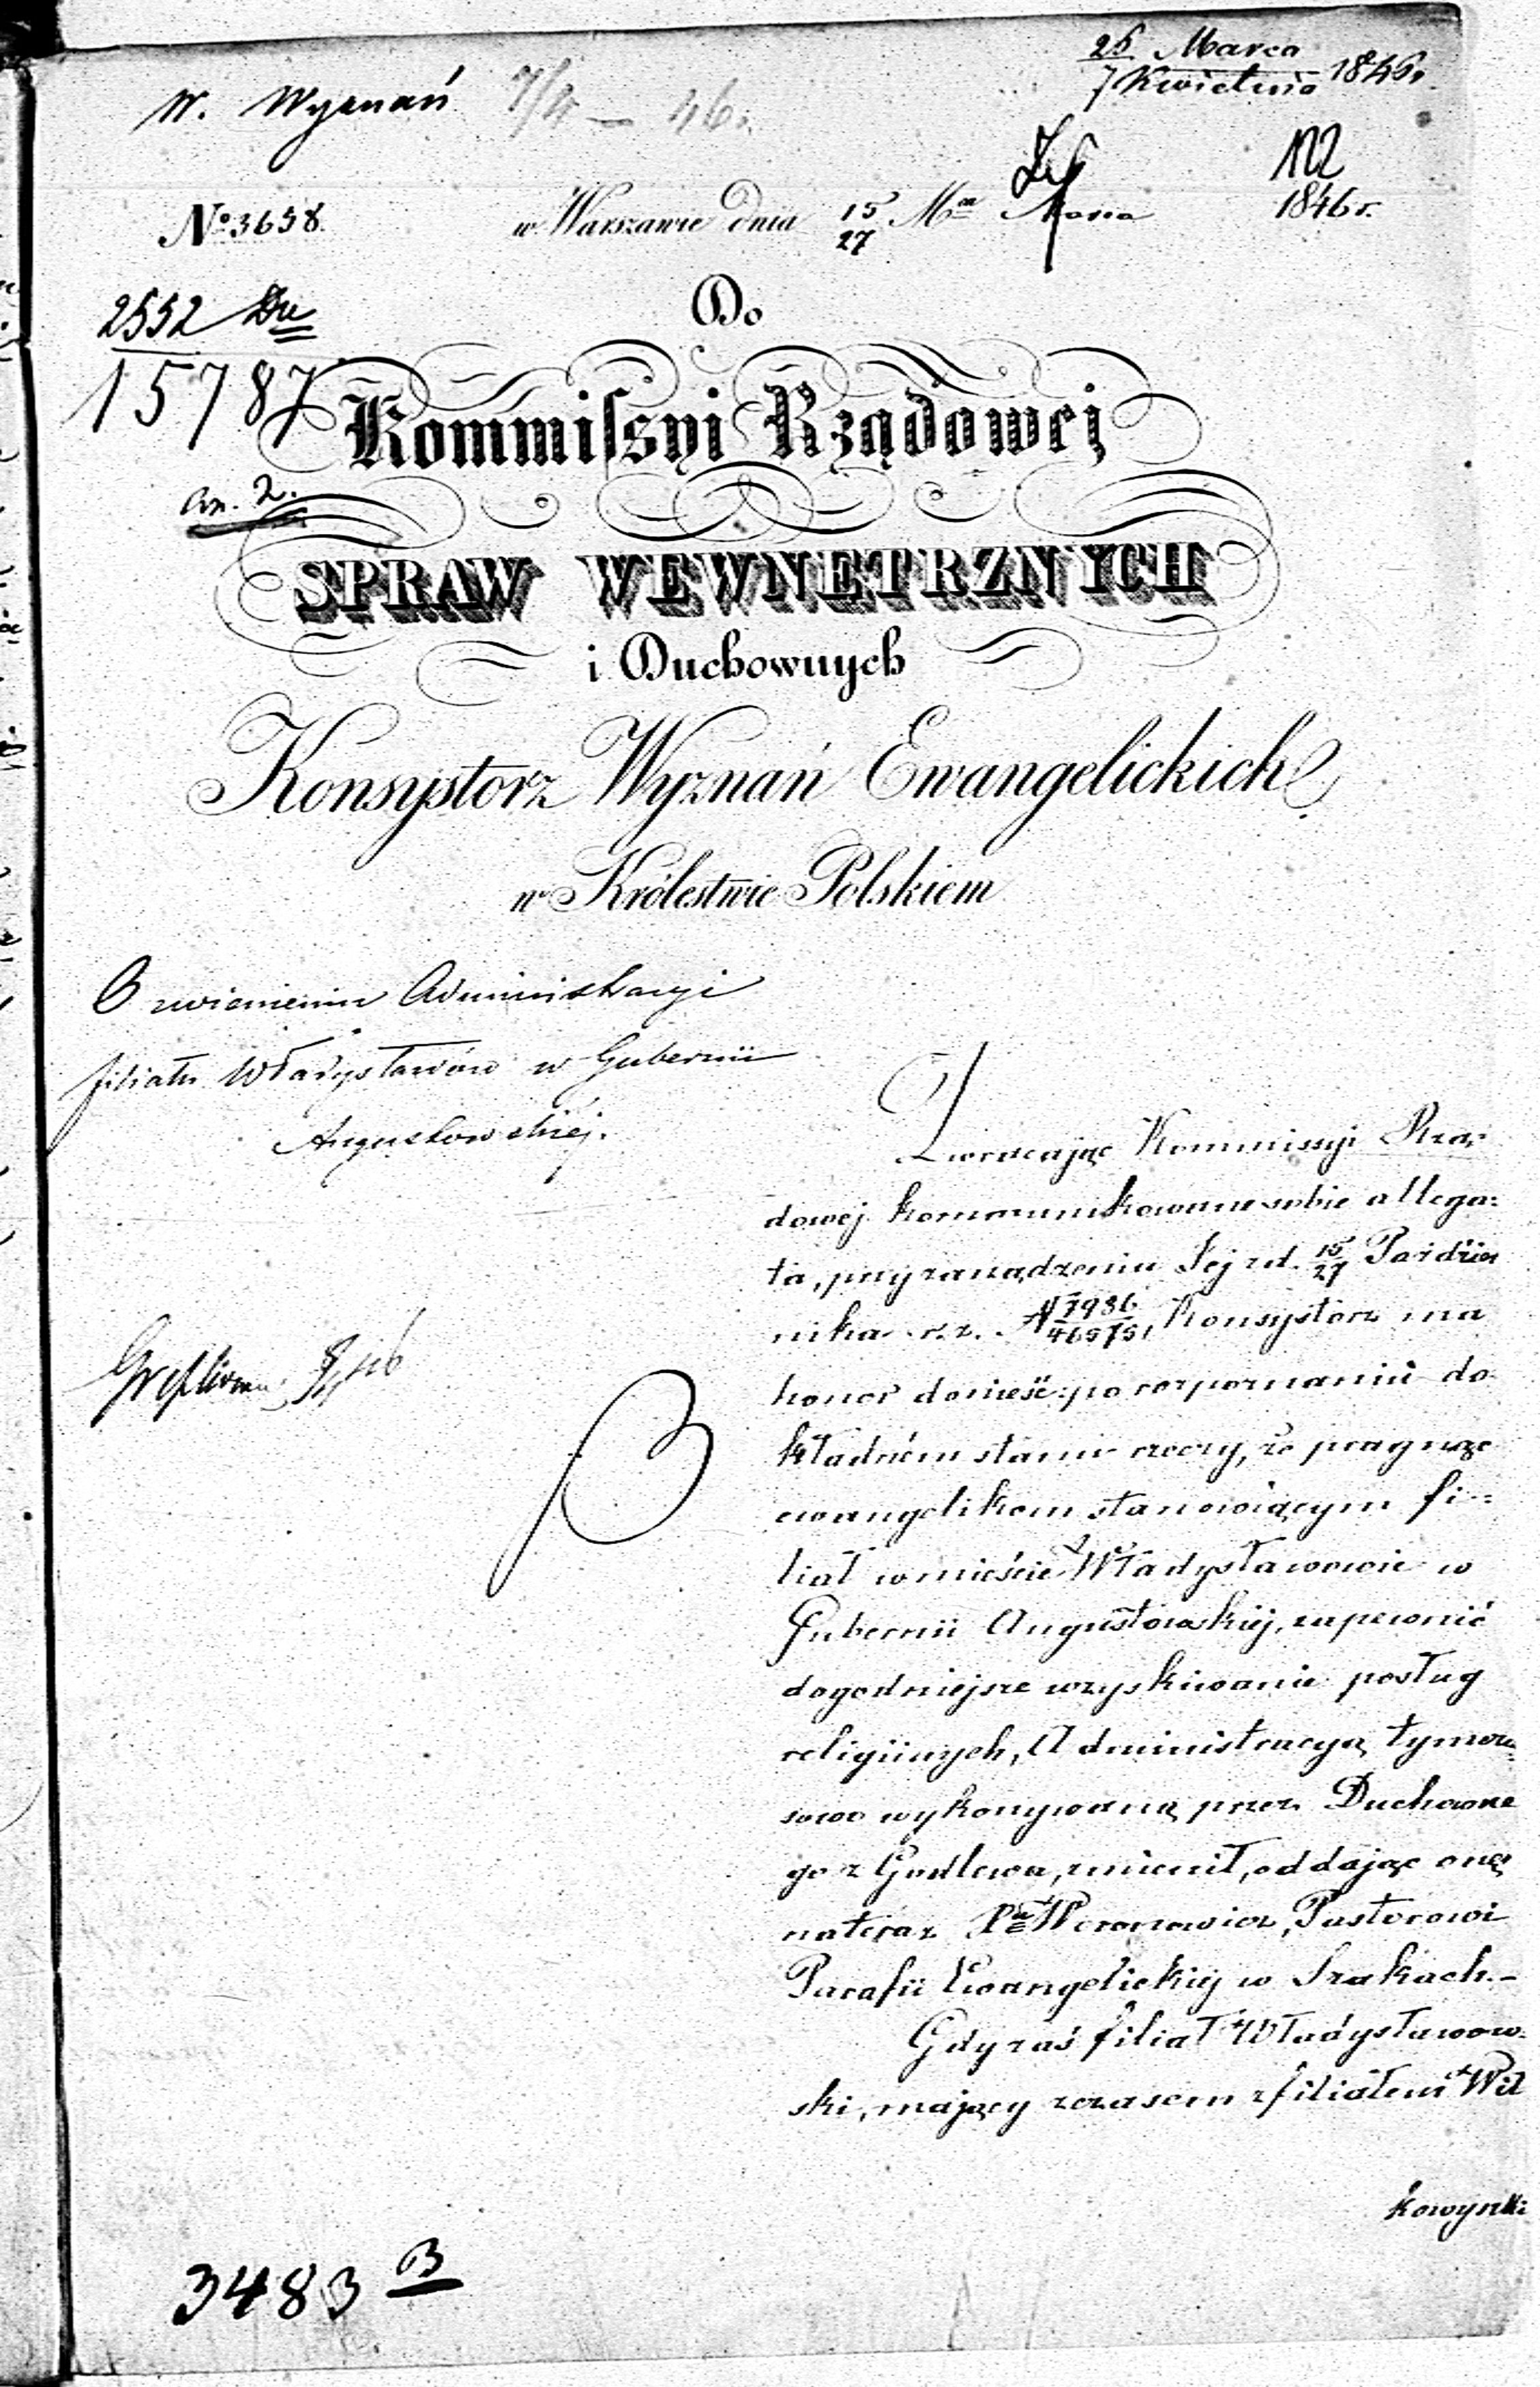 26 Marca
7 Kwietnia 1846.
W. Wyznań 7/4 — 46.
122
No 3658. w Warszawie dnia 15/27 Marca 1846 r.
2552
15787
an. 2.
Do
Kommissyi Rządowej
SPRAW WEWNĘTRZNYCH
i Duchownych
Konsystorz Wyznań Ewangelickich
w Królestwie Polskiem
O zmienieniu Administracyi
filiału Władysławów w Gubernii
Augustowskiéj.
Zwracając Kommissyi Rzą-
dowej kommunikowane sobie allega-
ta, przy rozrządzeniu Jej z d. 15/27 Paździer
nika r. z. N 7986/46575, Konsystorz ma
honor donieść: po rozpoznaniu do
kładném stanu rzeczy, że pragnąc
ewangelikom stanowiącym fi-
liał w mieście Władysławowie w
Gubernii Augustowskiéj, zapewnić
dogodniejsze uzyskiwanie posług
religijnych, Administracyą tymcza-
sowo wykonywaną przez Duchowne
go z Godlewa, zmienił, oddając onę
nateraz Pastorowi
Parafii Ewangelickiéj w Szakach.-
Gdy zaś filiał Władysławow-
ski, mający zczasem z filiałem Wił
kowyski
3483 B